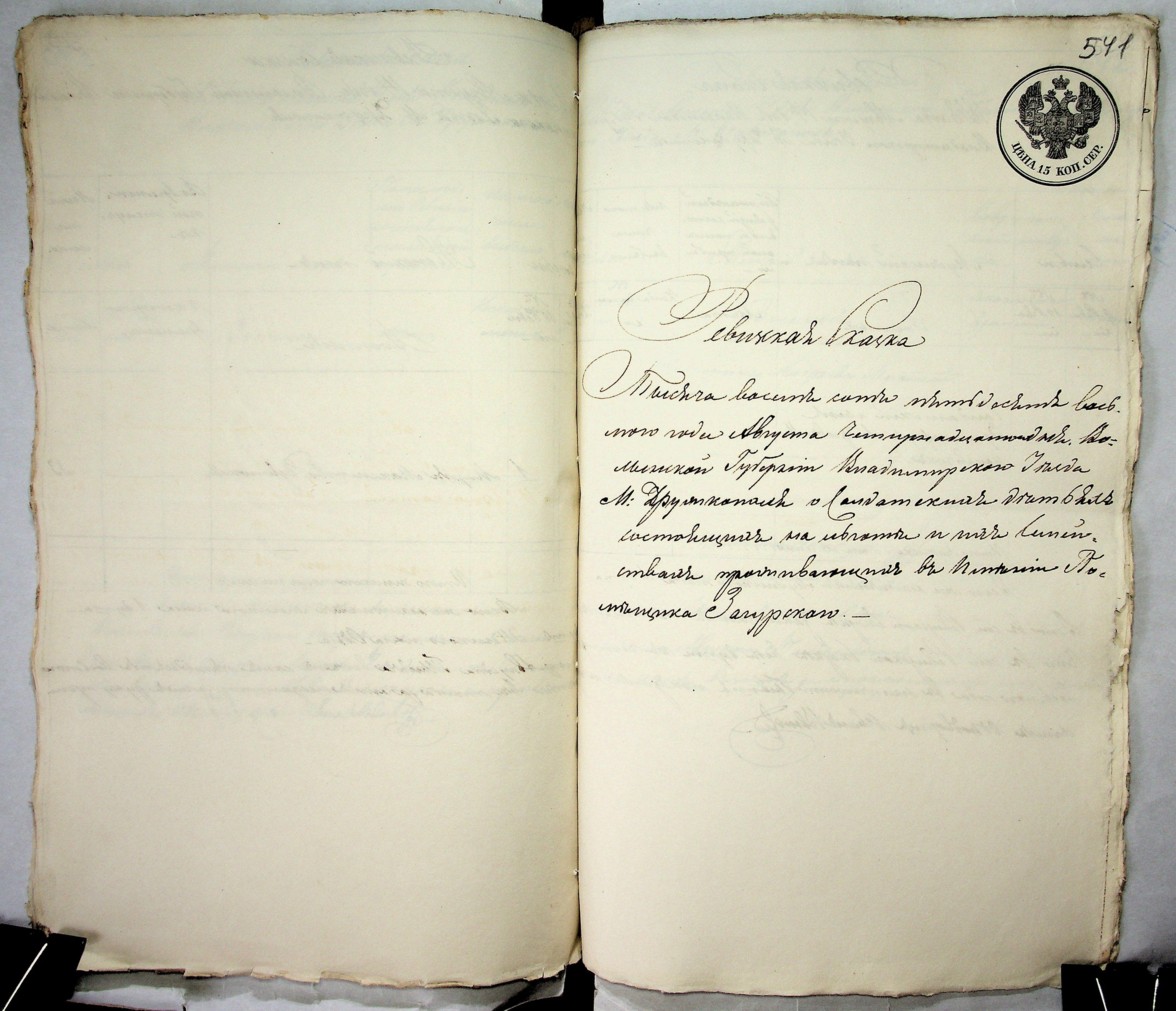 541
ЦѢНА 15 КОП. СЕР.
Ревизкая Сказка
Тысяча восемь сотъ пятьдесятъ вось-
мого года Августа Четырнадцатого дня. Во-
лынской Губерніи Владимирского Уѣзда
М: Дружкополя о Солдатскихъ дѣтяхъ
состоящихъ на льготѣ и ихъ Семей-
ствахъ проживающихъ въ Имѣніи По-
мѣщика Загурского. —